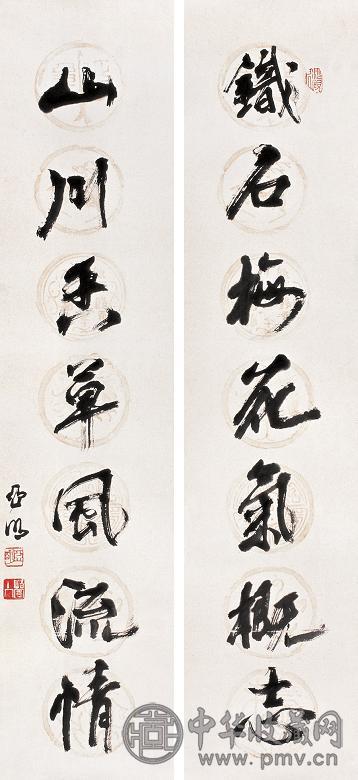 鐵石梅花氣概志
山川香草風流情
亞明
中华收藏网
www.pmv.cn